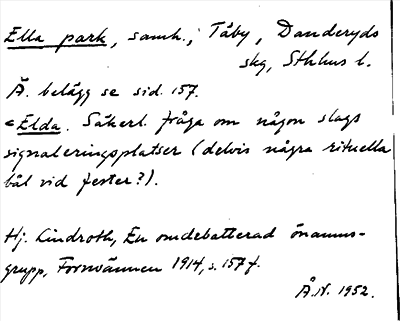 Ella park, samh.; Täby, Danderyds
skg, Sthlms l.
Ä. belägg se sid. 157.
< Elda. Säkerl. fråga om någon slags
signaleringsplatser (delvis några rituella
bål vid fester?).
Hj. Lindroth, En omdebatterad önamns-
grupp, Fornvännen 1914, s. 157 f.
Å.N. 1952.